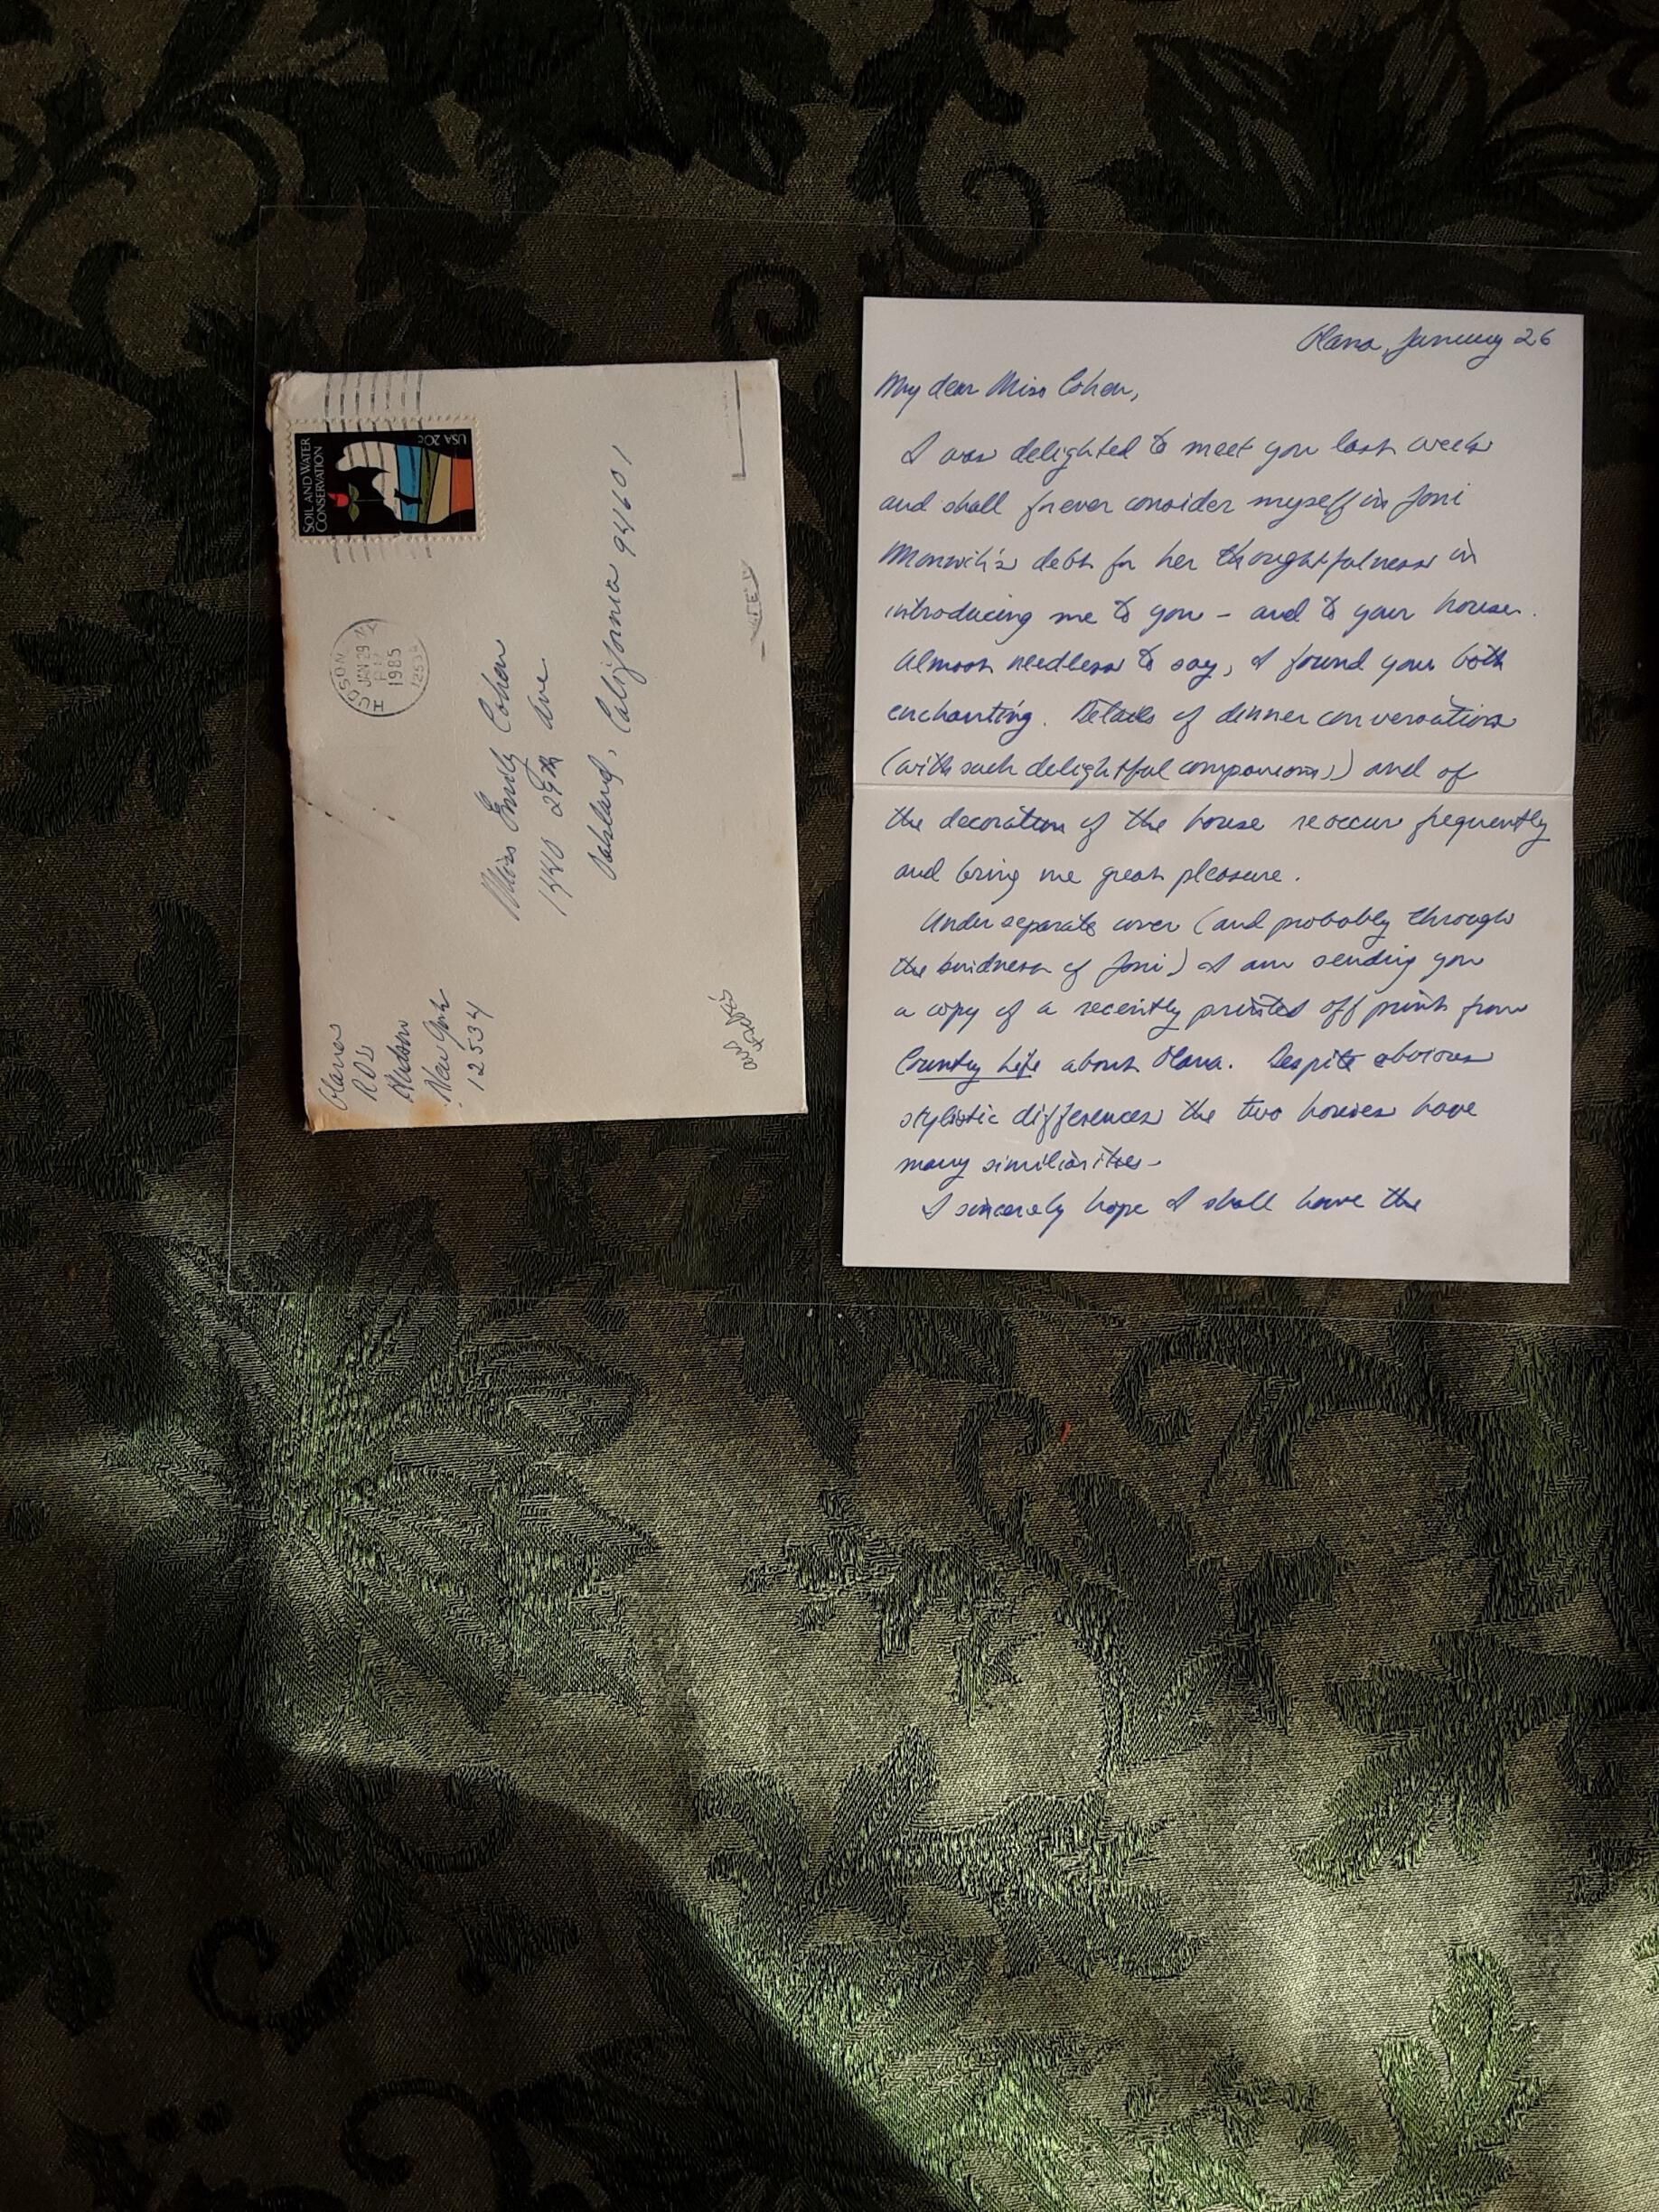 SOIL AND WATER
CONSERVATION
USA 20c
HUDSON
JAN 29
1985
12534
Olana
RD2
Hudson
New York
12534
Miss Emily Cohen
1440 29th Ave
Oakland, California 94601
Olana, January 26
My dear Miss Cohen,
I was delighted to meet you last week
and shall forever consider myself in Joni
debt for her thoughtfulness in
introducing me to you - and to your house.
Almost needless to say, I found you both
enchanting. Details of dinner conversation
(with such delightful companions) and of
the decoration of the house reoccur frequently
and bring me great pleasure.
Under separate cover (and probably through
the kindness of Joni) I am sending you
a copy of a recently printed off print from
Country Life about Olana. Despite obvious
stylistic differences the two houses have
many similiarities-
I sincerely hope I shall have the